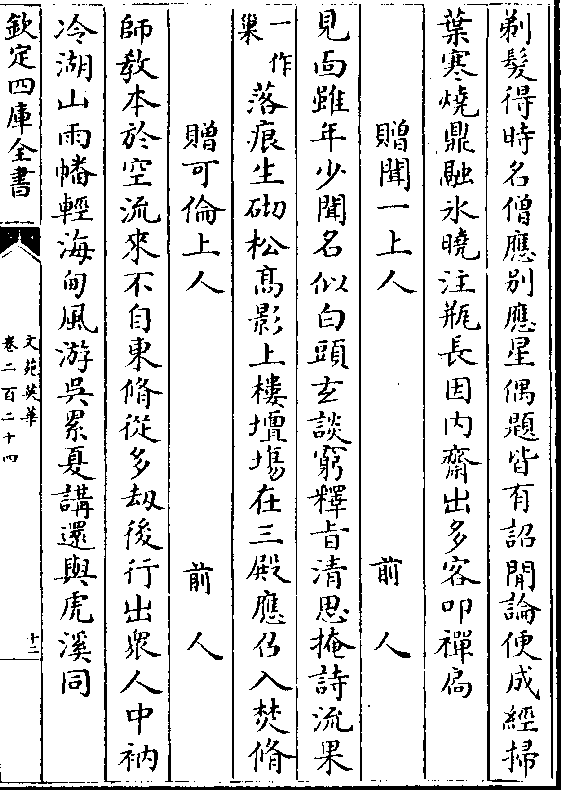 剃髮得時名僧應別應星偶題皆有詔閒論便成經掃
葉寒燒鼎融氷曉注瓶長因内齋出多客叩禪扃
贈聞一上人 前人
見面雖年少聞名似白頭玄談窮釋旨清思掩詩流果
一作巢落痕生砌松髙影上樓壇場在三殿應仍入焚脩
贈可倫上人 前人
師教本於空流來不自東脩從多刼後行出衆人中衲
冷湖山雨幡輕海甸風游吳累夏講還與虎溪同
欽定四庫全書
文苑英華
卷二百二十四
十二